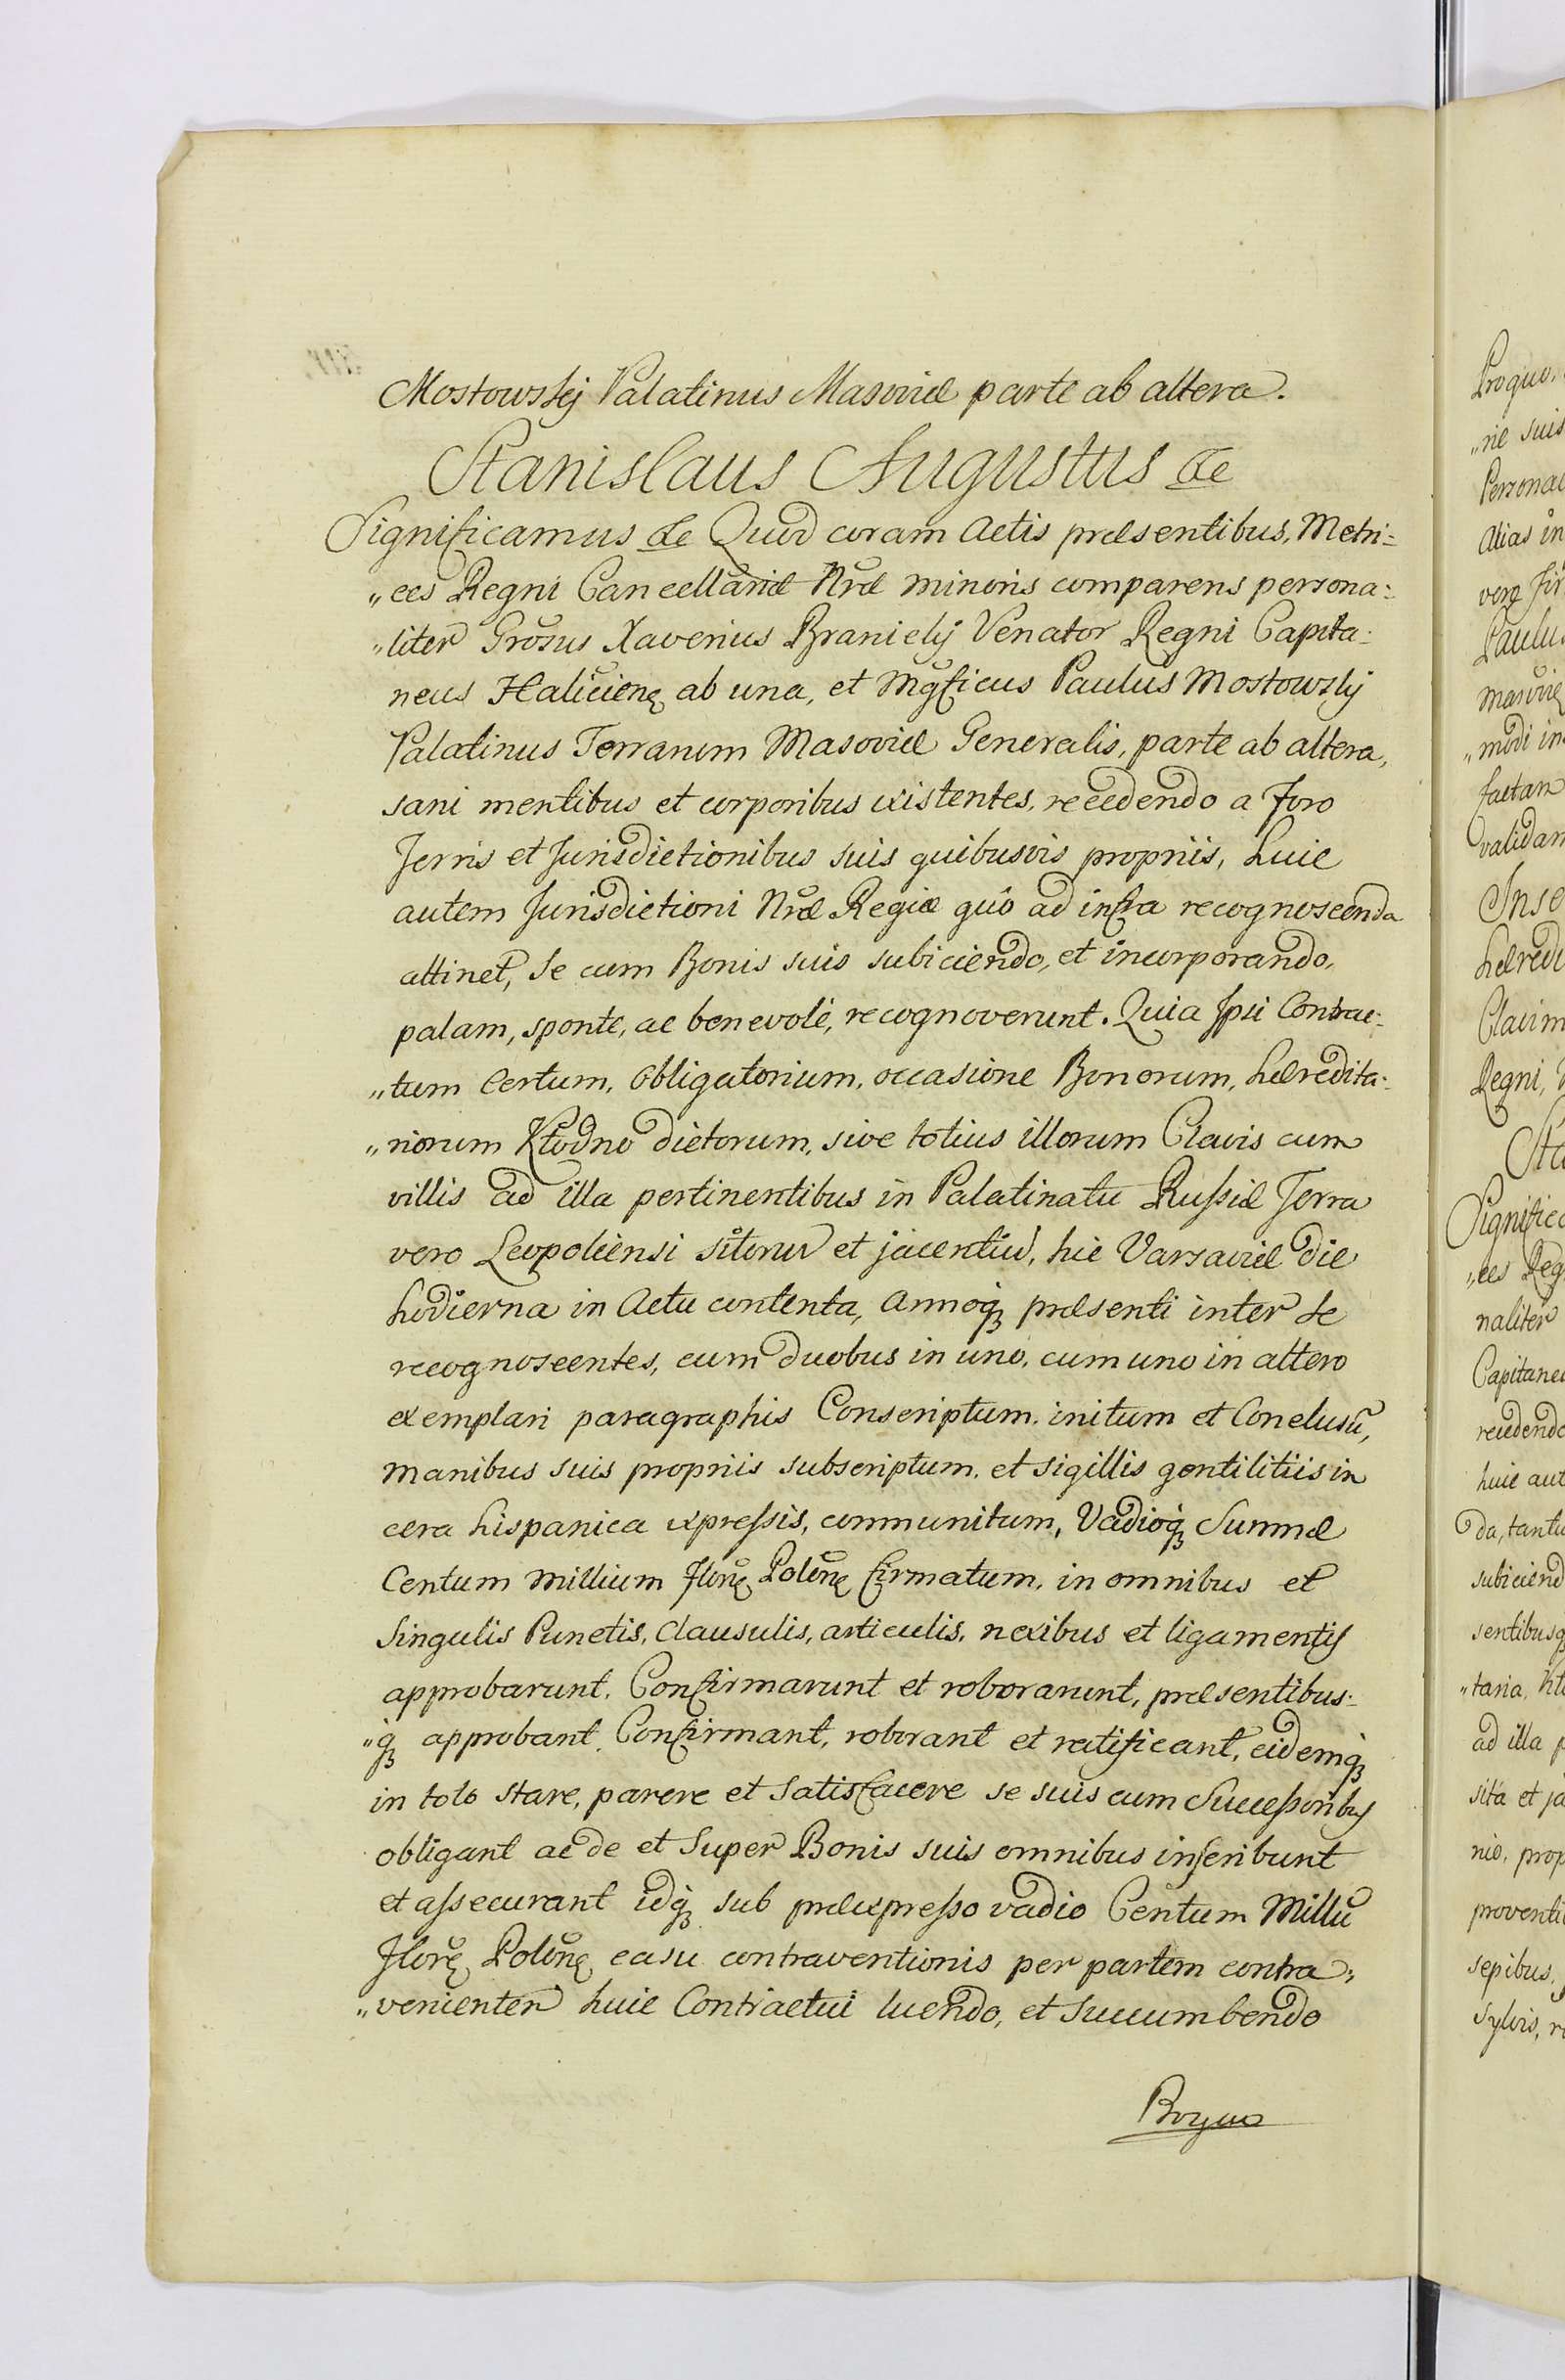 Mostowskij Palatinus Masoviæ parte ab altera.
Stanislaus Augustus &c
Significamus &c Quod coram Actis præsentibus, Metri=
„ces Regni Cancellariæ Nræ minoris comparens persona=
„liter Grosus Xaverius Branicky Venator Regni Capita=
neus Haliciens ab una, et Mgficus Paulus Mostowsky
Palatinus Terrarum Masoviæ Generalis, parte ab altera,
sani mentibus et corporibus existentes, recedendo a Foro
Terris et Jurisdictionibus suis quibusvis propriis, huic
autem Jurisdictioni Nræ Regiæ quô ad infra recognoscenda
attinet, se cum Bonis suis subiciendo, et incorporando,
palam, sponte, ac benevolè, recognoverunt. Quia Ipsi Contrac=
„tum Certum, Obligatorium, occasione Bonorum, hæredita=
„riorum Kłodno dictorum, sive totius illorum Clavis cum
villis ad illa pertinentibus in Palatinatu Russiæ Terra
vero Leopoliensi sitorum et jacentiu, hic Varsaviæ die
hodierna in Actu contenta, Annoq; præsenti inter se
recognoscentes, cum duobus in uno, cum uno in altero
exemplari paragraphis Conscriptum, initum et Conclusū,
manibus suis propriis subscriptum, et sigillis gentilitiis in
cera hispanica expressis, communitum, Vadioq; Summæ
Centum Millium Floren Polon firmatum, in omnibus et
Singulis Punctis, Clausulis, articulis, nexibus et ligamentis
approbarunt, Confirmarunt et roborarunt, præsentibus=
„q; approbant, Confirmant, roborant et ratificant, eidemq;
in toto stare, parere et Satisfacere se suis cum Successoribus
obligant ac de et Super Bonis suis omnibus inscribunt
et assecurant idq; sub præexpresso vadio Centum Milliū
Floren Polon casu contraventionis per partem contra=
„venientem huic Contractui luendo, et Succumbendo
Proquo.
„riæ suis
Personal
Alias in
vero fir
Paulus
Masoviæ
„modi in
factam
validam
Inse
hæredi
Clavim
Regni,
Sta
Significa
„ces Reg
naliter
Capitaneu
recedendo
huic aut
da, tantu
subiciend
sentibusq
„taria, Kło
ad illa p
sita et ja
nio, prop
proventi
sepibus,
Sylvis, r